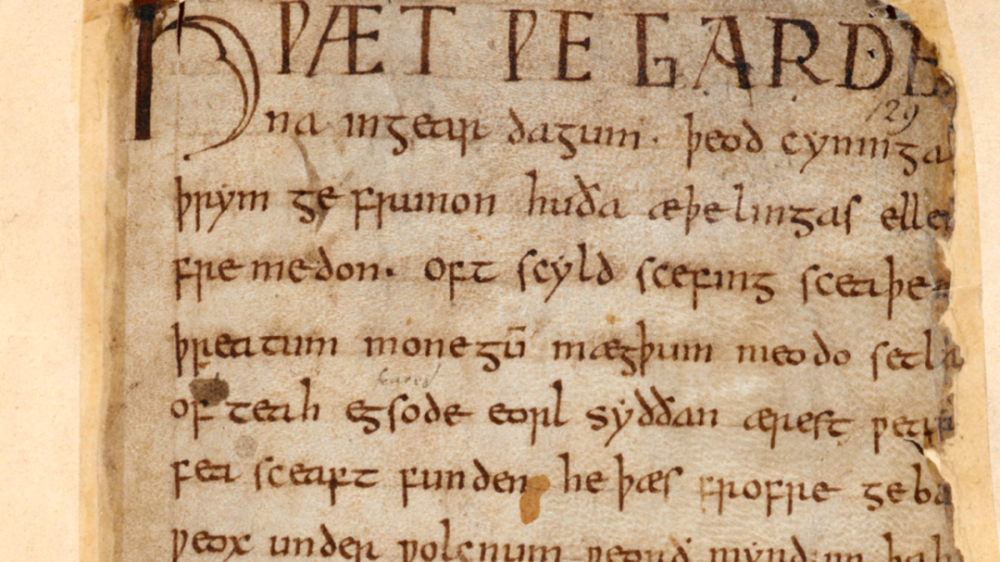 HǷÆT ǷE GARDE
na ingear dagum. þeod cyninga
þrym ge frunon huða æþelingas elle
fremedon. oft scyld scefing sceaþe
þreatum monegū mægþum meodo setla
of teah egsode eorl syððan ærest ƿear
fea sceaft funden he þæs frofre geba
ƿeox under ƿolcnum ƿeorð myndum
129